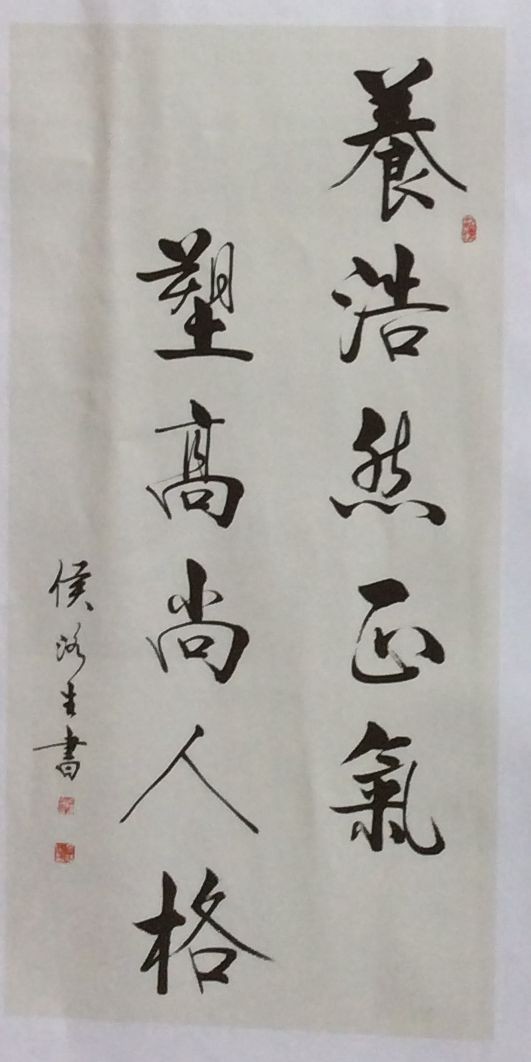 養浩然正氣
塑高尚人格
侯洛生書